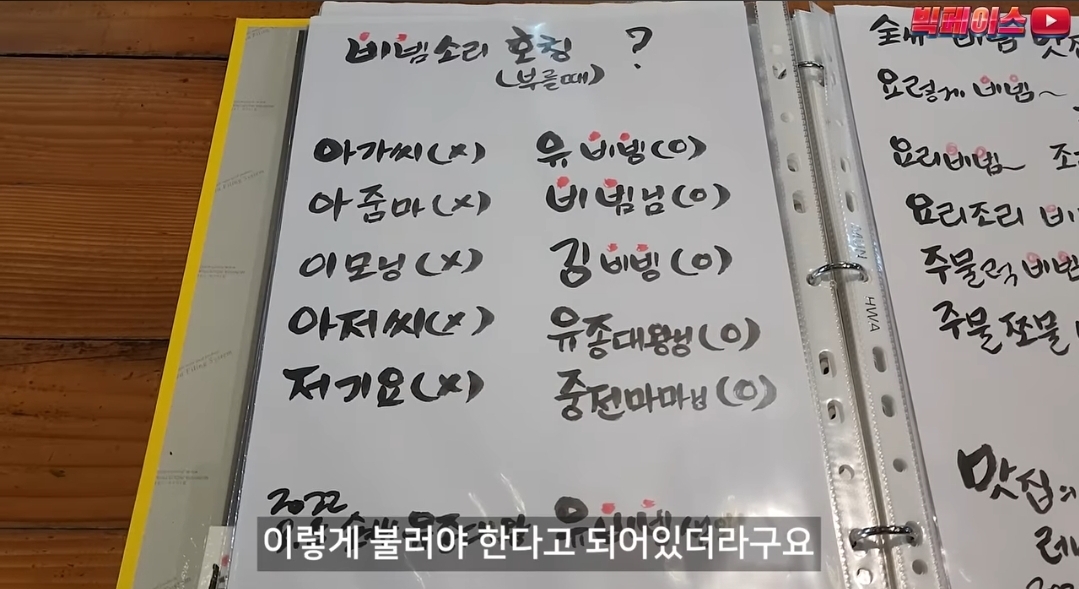 빅페이스
비빔소리 호칭 ?
(부를때)
아가씨(x) 유비빔(o)
아줌마(x) 비빔님(o)
이모님(x) 김비빔(o)
아저씨(x) 유종대왕님(o)
저기요(x) 중전마마님(o)
2022
이렇게 불러야 한다고 되어있더라구요
요렇게 비빔~
요리비빔~
요리조리
주물럭 비빔
주물쪼물
맛집의